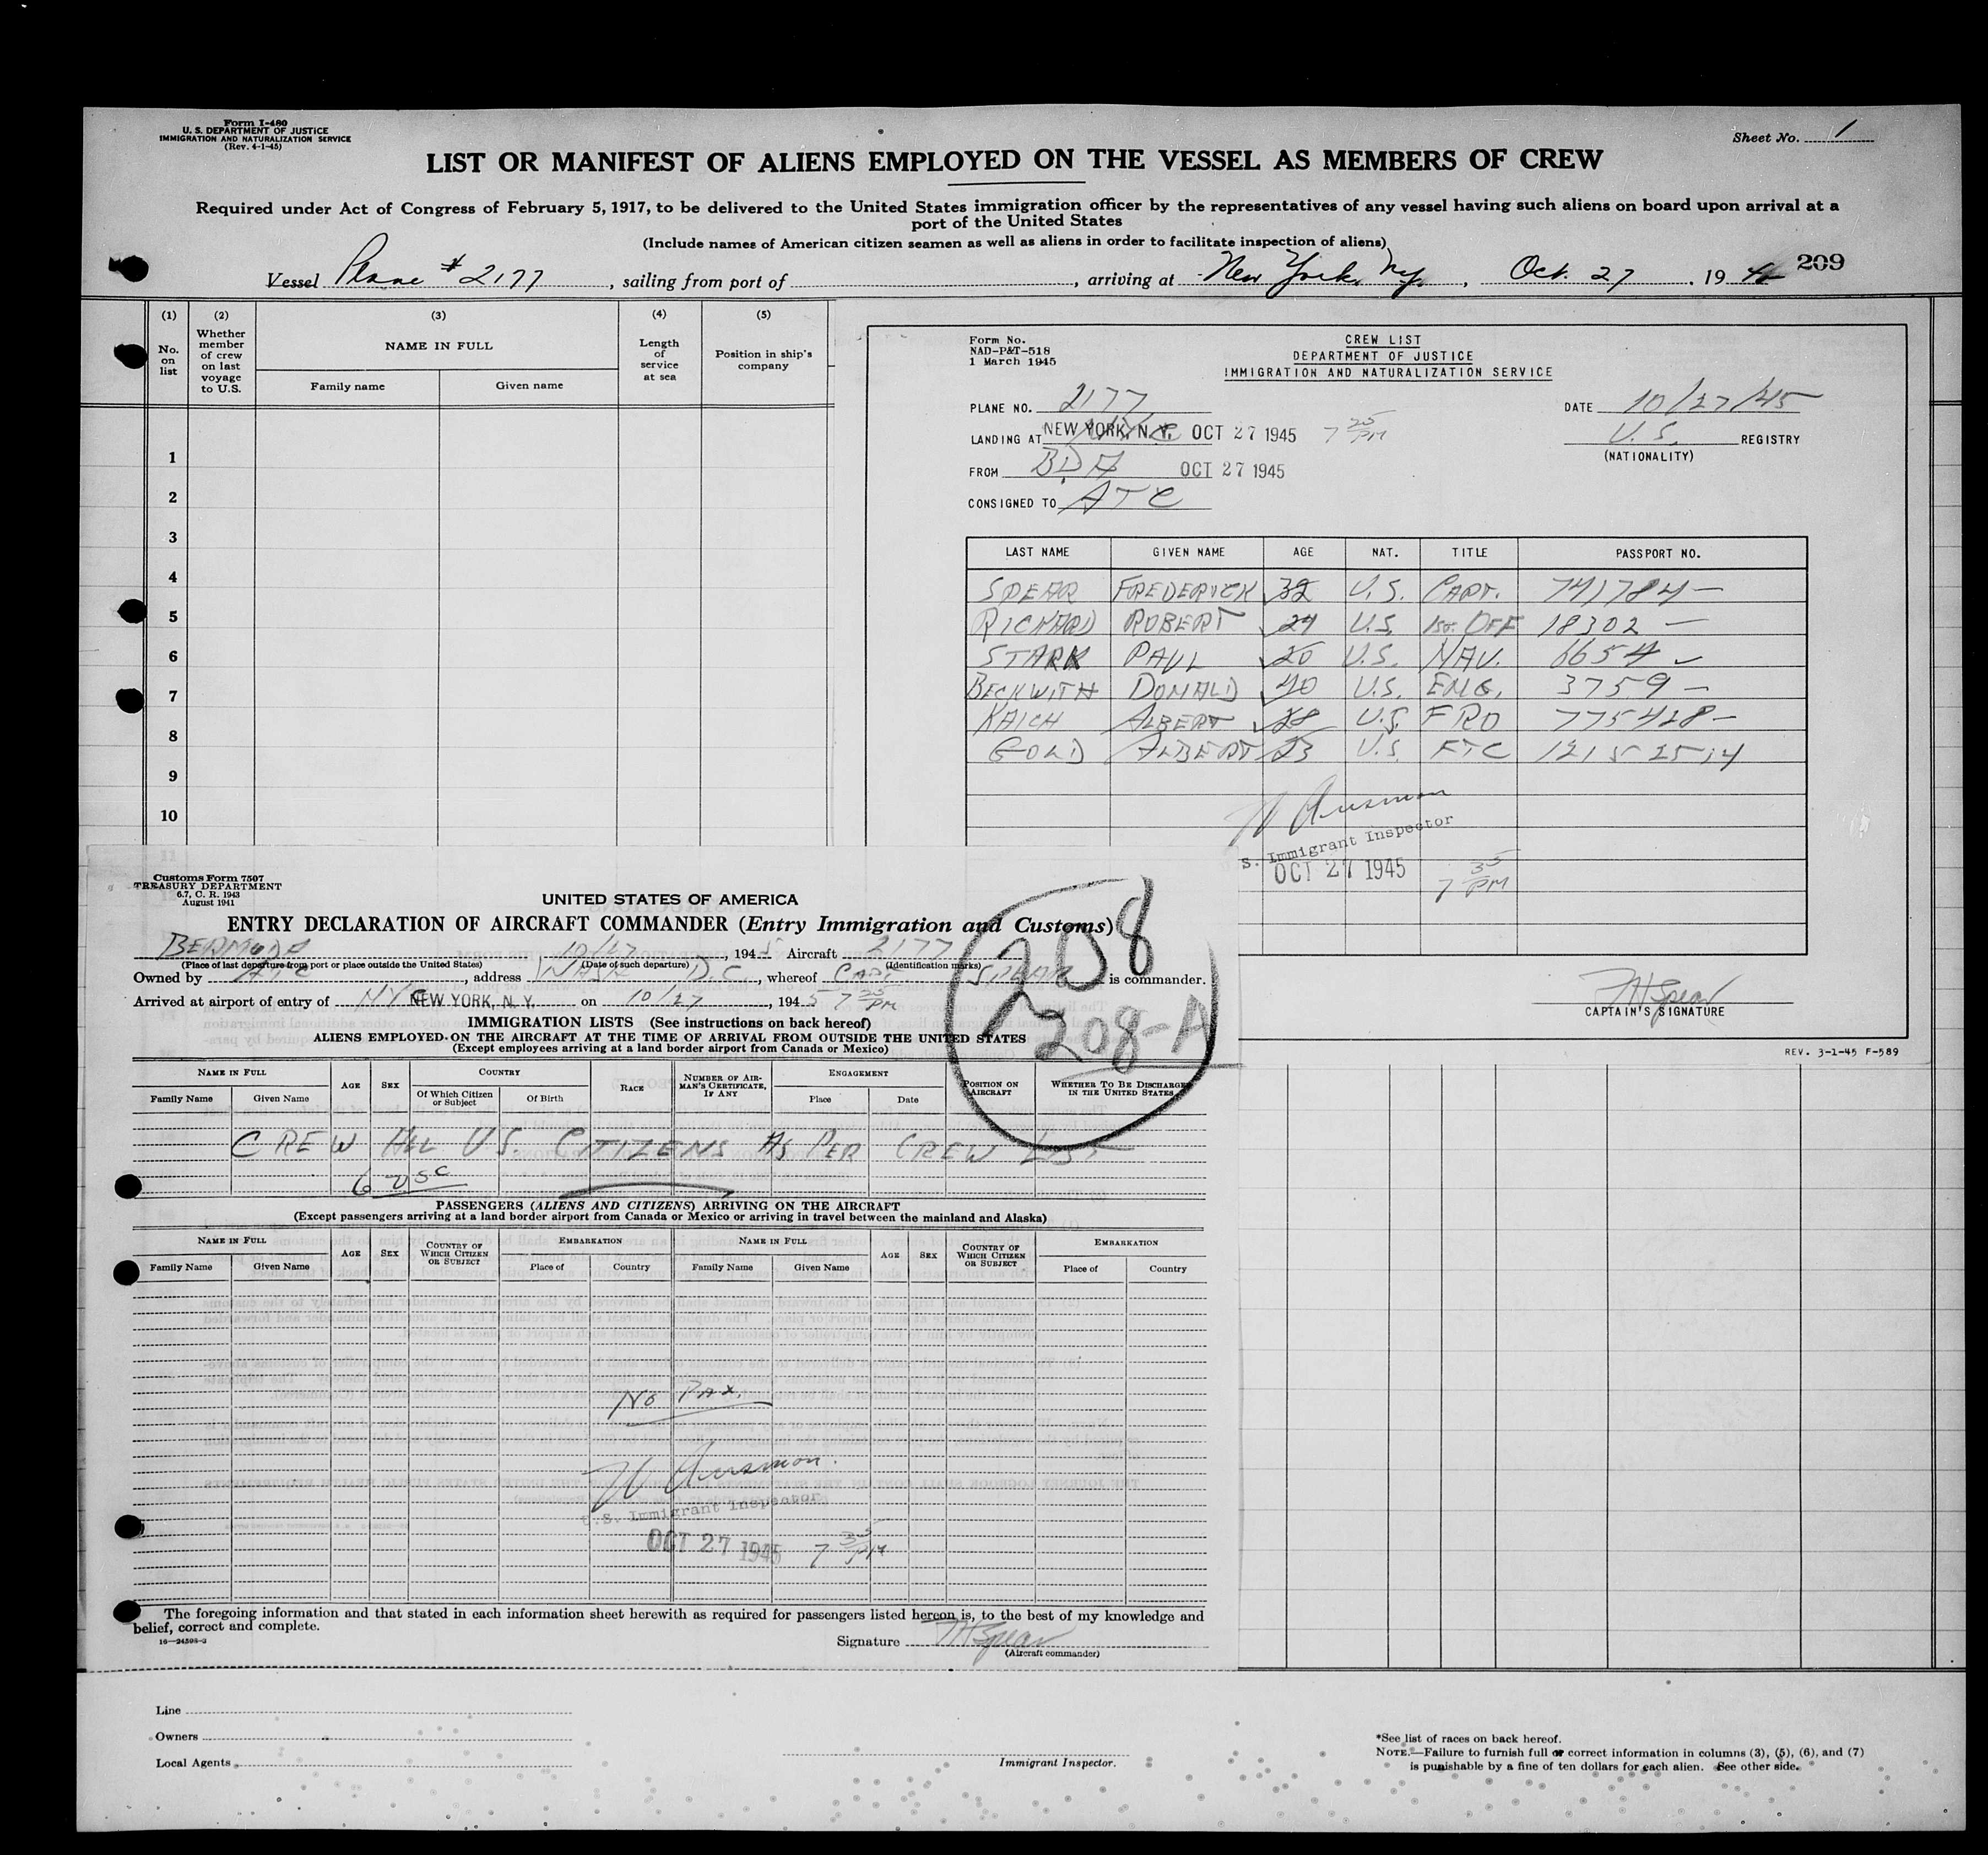 Form I-480
U. S. DEPARTMENT OF JUSTICE
IMMIGRATION AND NATURALIZATION SERVICE
(Rev. 4-1-45)
Sheet No. 1
LIST OR MANIFEST OF ALIENS EMPLOYED ON THE VESSEL AS MEMBERS OF CREW
Required under Act of Congress of February 5, 1917, to be delivered to the United States immigration officer by the representatives of any vessel having such aliens on board upon arrival at a
port of the United States
(Include names of American citizen seamen as well as aliens in order to facilitate inspection of aliens)
Vessel Plane # 2177, sailing from port of , arriving at New York, Ny., Oct. 27, 19 45 209
(1) (2) (3) (4) (5)
No. on list
Whether member of crew on last voyage to U.S.
NAME IN FULL
Family name Given name
Length of service at sea
Position in ship's company
1
2
3
4
5
6
7
8
9
10
11
Form No.
NAD-P&T-518
1 March 1945
CREW LIST
DEPARTMENT OF JUSTICE
IMMIGRATION AND NATURALIZATION SERVICE
PLANE NO. 2177 DATE 10/27/45
LANDING AT NEW YORK, N. Y. OCT 27 1945 7 25 PM U.S. REGISTRY
(NATIONALITY)
FROM BDA OCT 27 1945
CONSIGNED TO ATC
LAST NAME GIVEN NAME AGE NAT. TITLE PASSPORT NO.
SPEAR FREDERICK 32 U.S. CAPT. 741784 —
RICHARD ROBERT 24 U.S. 1ST. OFF 18302 —
STARK PAUL 20 U.S. NAV. 6654
BECKWITH DONALD 40 U.S. ENG. 3759 —
KAICH ALBERT 28 U.S. FRO 775428 —
GOLD ALBERT 23 U.S. FTC 12152514
S. Immigrant Inspector
OCT 27 1945 7 35 PM
FHSpear
CAPTAIN'S SIGNATURE
REV. 3-1-45 F-589
Customs Form 7507
TREASURY DEPARTMENT
6.7, C. R. 1943
August 1941
UNITED STATES OF AMERICA
ENTRY DECLARATION OF AIRCRAFT COMMANDER (Entry Immigration and Customs)
208
208-A
BERMUDA 10/27, 1945 Aircraft 2177
(Place of last departure from port or place outside the United States) (Date of such departure) (Identification marks)
Owned by ATC, address WASH D.C., whereof CAPT SPEAR is commander.
Arrived at airport of entry of NYC NEW YORK, N. Y. on 10/27, 1945 7 25 PM
IMMIGRATION LISTS (See instructions on back hereof)
ALIENS EMPLOYED ON THE AIRCRAFT AT THE TIME OF ARRIVAL FROM OUTSIDE THE UNITED STATES
(Except employees arriving at a land border airport from Canada or Mexico)
NAME IN FULL AGE SEX COUNTRY RACE NUMBER OF AIRMAN'S CERTIFICATE, IF ANY ENGAGEMENT POSITION ON AIRCRAFT WHETHER TO BE DISCHARGED IN THE UNITED STATES
Family Name Given Name Of Which Citizen or Subject Of Birth Place Date
CREW ALL U.S. CITIZENS AS PER CREW LIST
6 USC
PASSENGERS (ALIENS AND CITIZENS) ARRIVING ON THE AIRCRAFT
(Except passengers arriving at a land border airport from Canada or Mexico or arriving in travel between the mainland and Alaska)
NAME IN FULL AGE SEX COUNTRY OF WHICH CITIZEN OR SUBJECT EMBARKATION NAME IN FULL AGE SEX COUNTRY OF WHICH CITIZEN OR SUBJECT EMBARKATION
Family Name Given Name Place of Country Family Name Given Name Place of Country
No Pax.
U.S. Immigrant Inspector
OCT 27 1945 7 35 PM
The foregoing information and that stated in each information sheet herewith as required for passengers listed hereon is, to the best of my knowledge and
belief, correct and complete.
16—24598-2
Signature FHSpear
(Aircraft commander)
Line
Owners
Local Agents
Immigrant Inspector.
*See list of races on back hereof.
NOTE.—Failure to furnish full or correct information in columns (3), (5), (6), and (7)
is punishable by a fine of ten dollars for each alien. See other side.